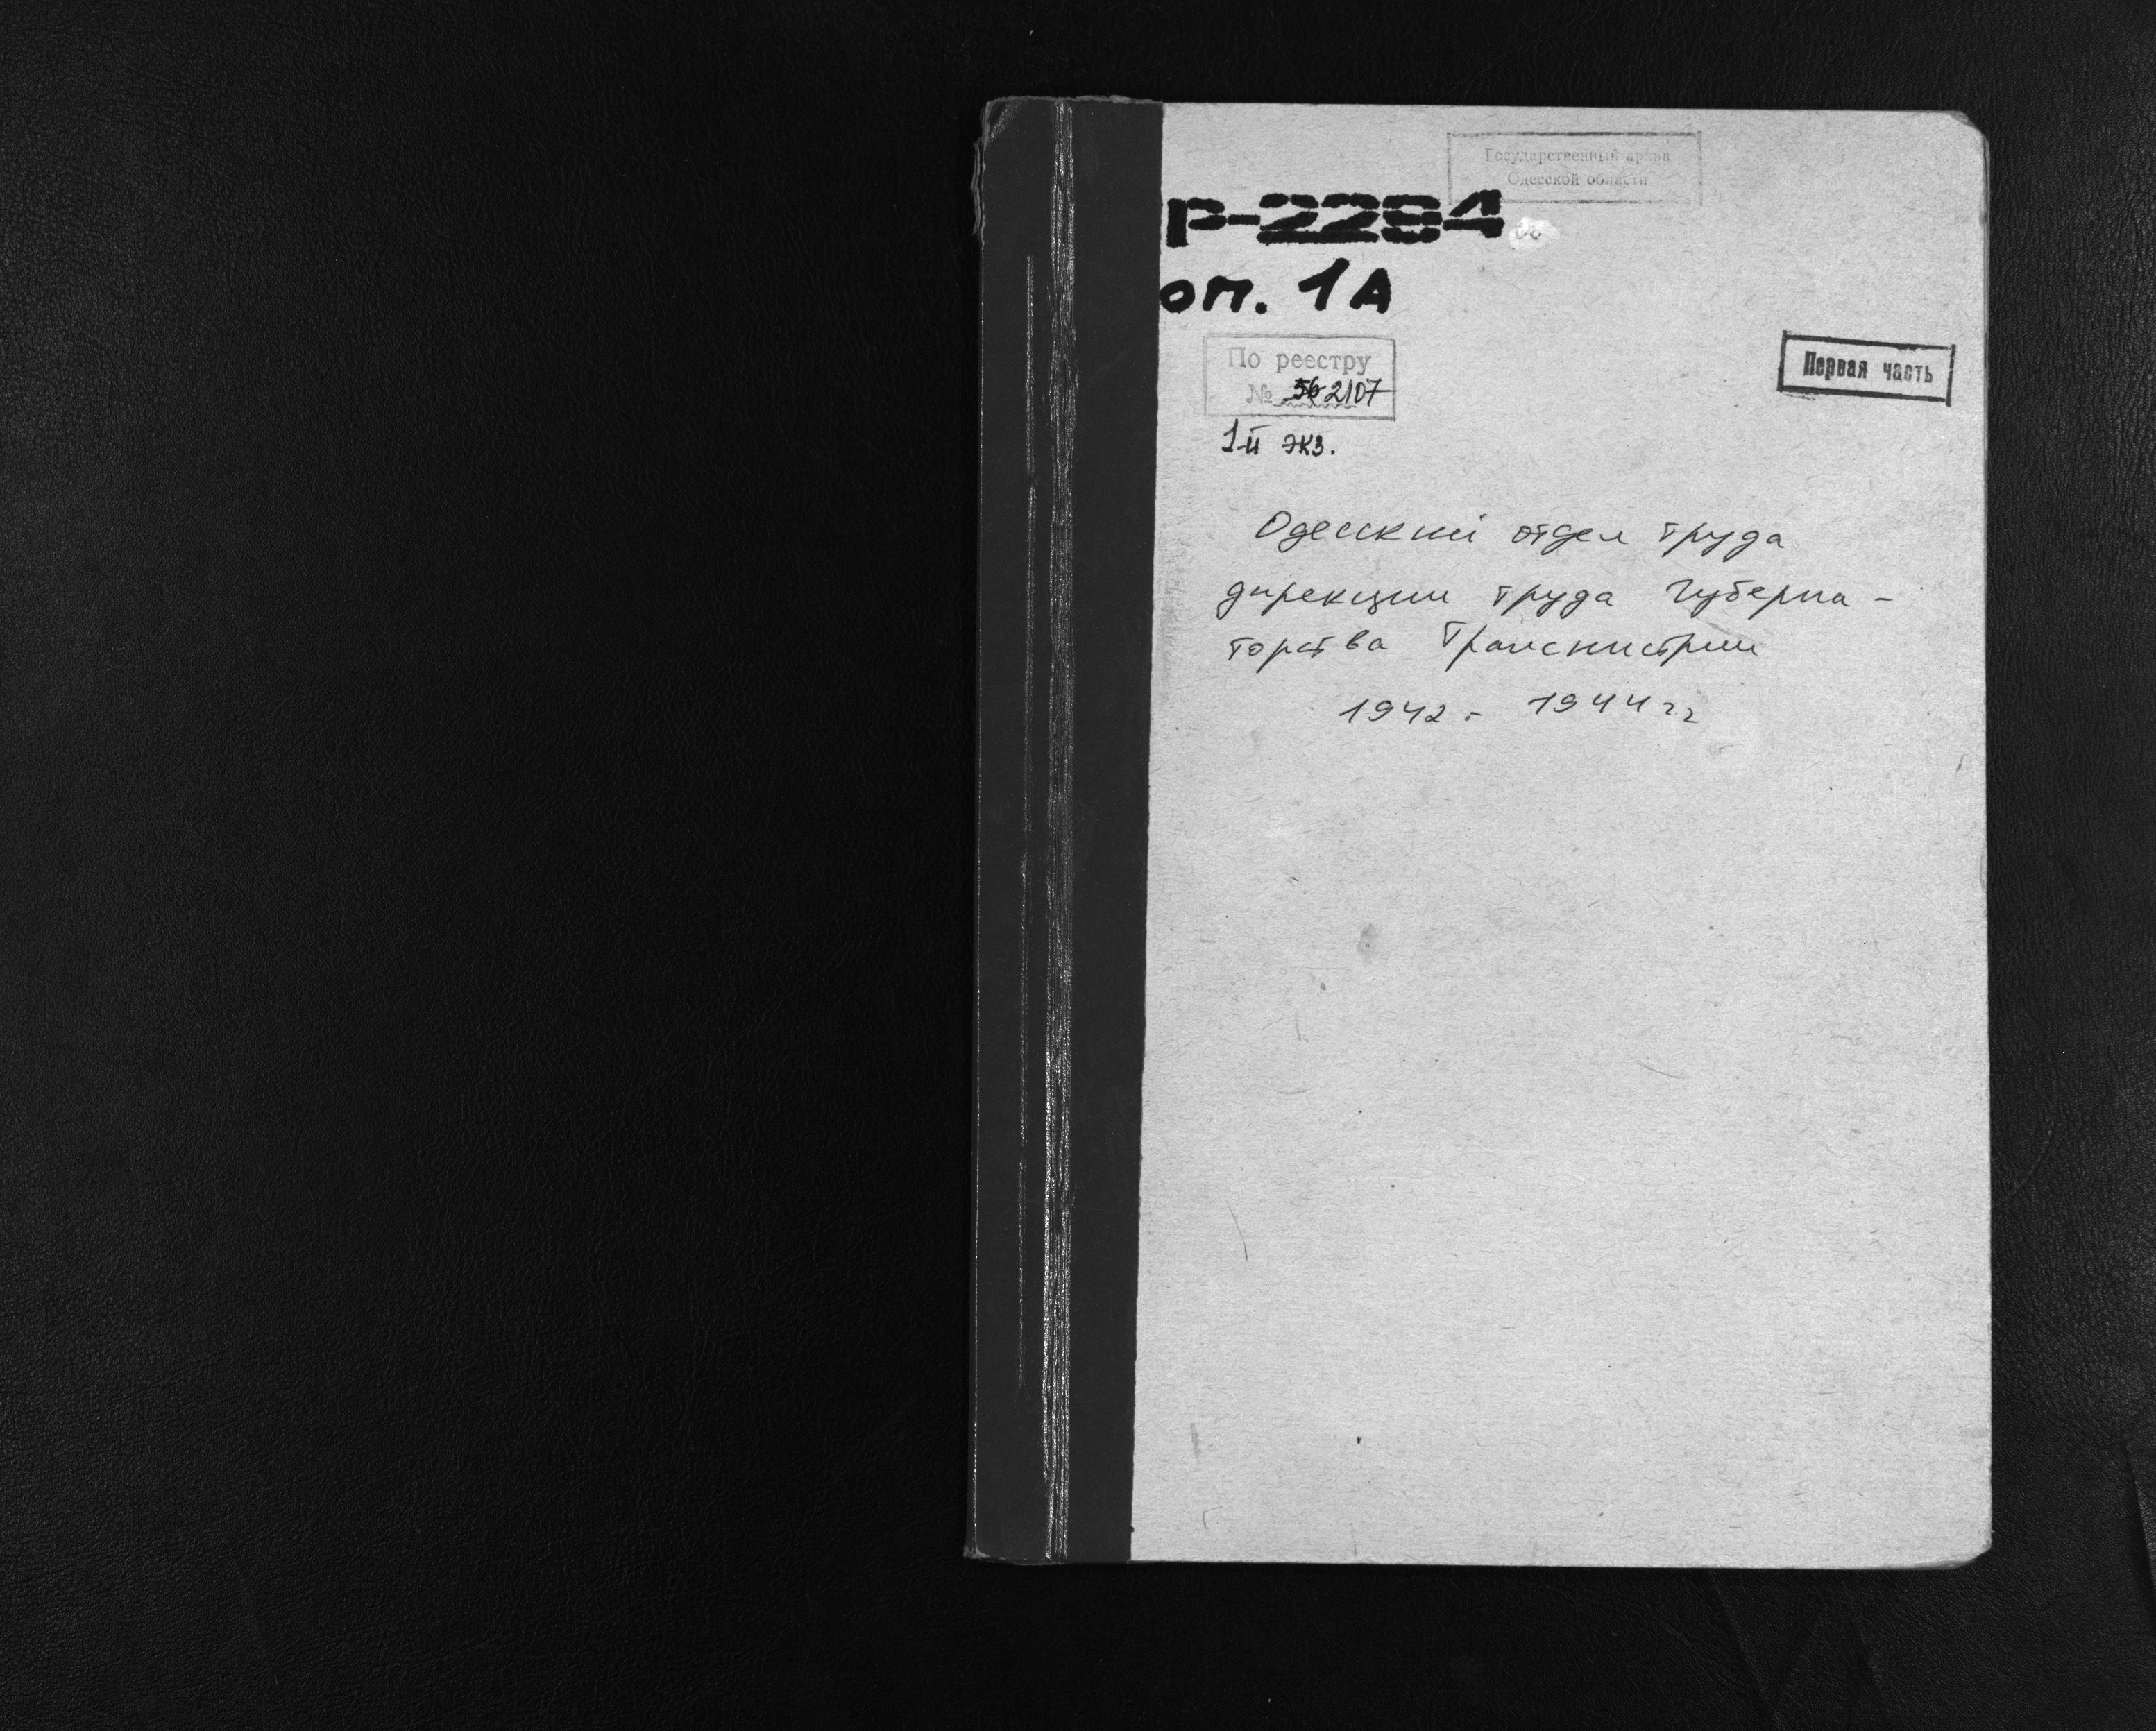 Государственный архив
Одесской области
Р-2284
оп. 1А
По реестру
№ 56 2107
Первая часть
1й экз.
Одесский отдел труда
дирекции труда Губерна-
торства Транснистрии
1942 - 1944 гг